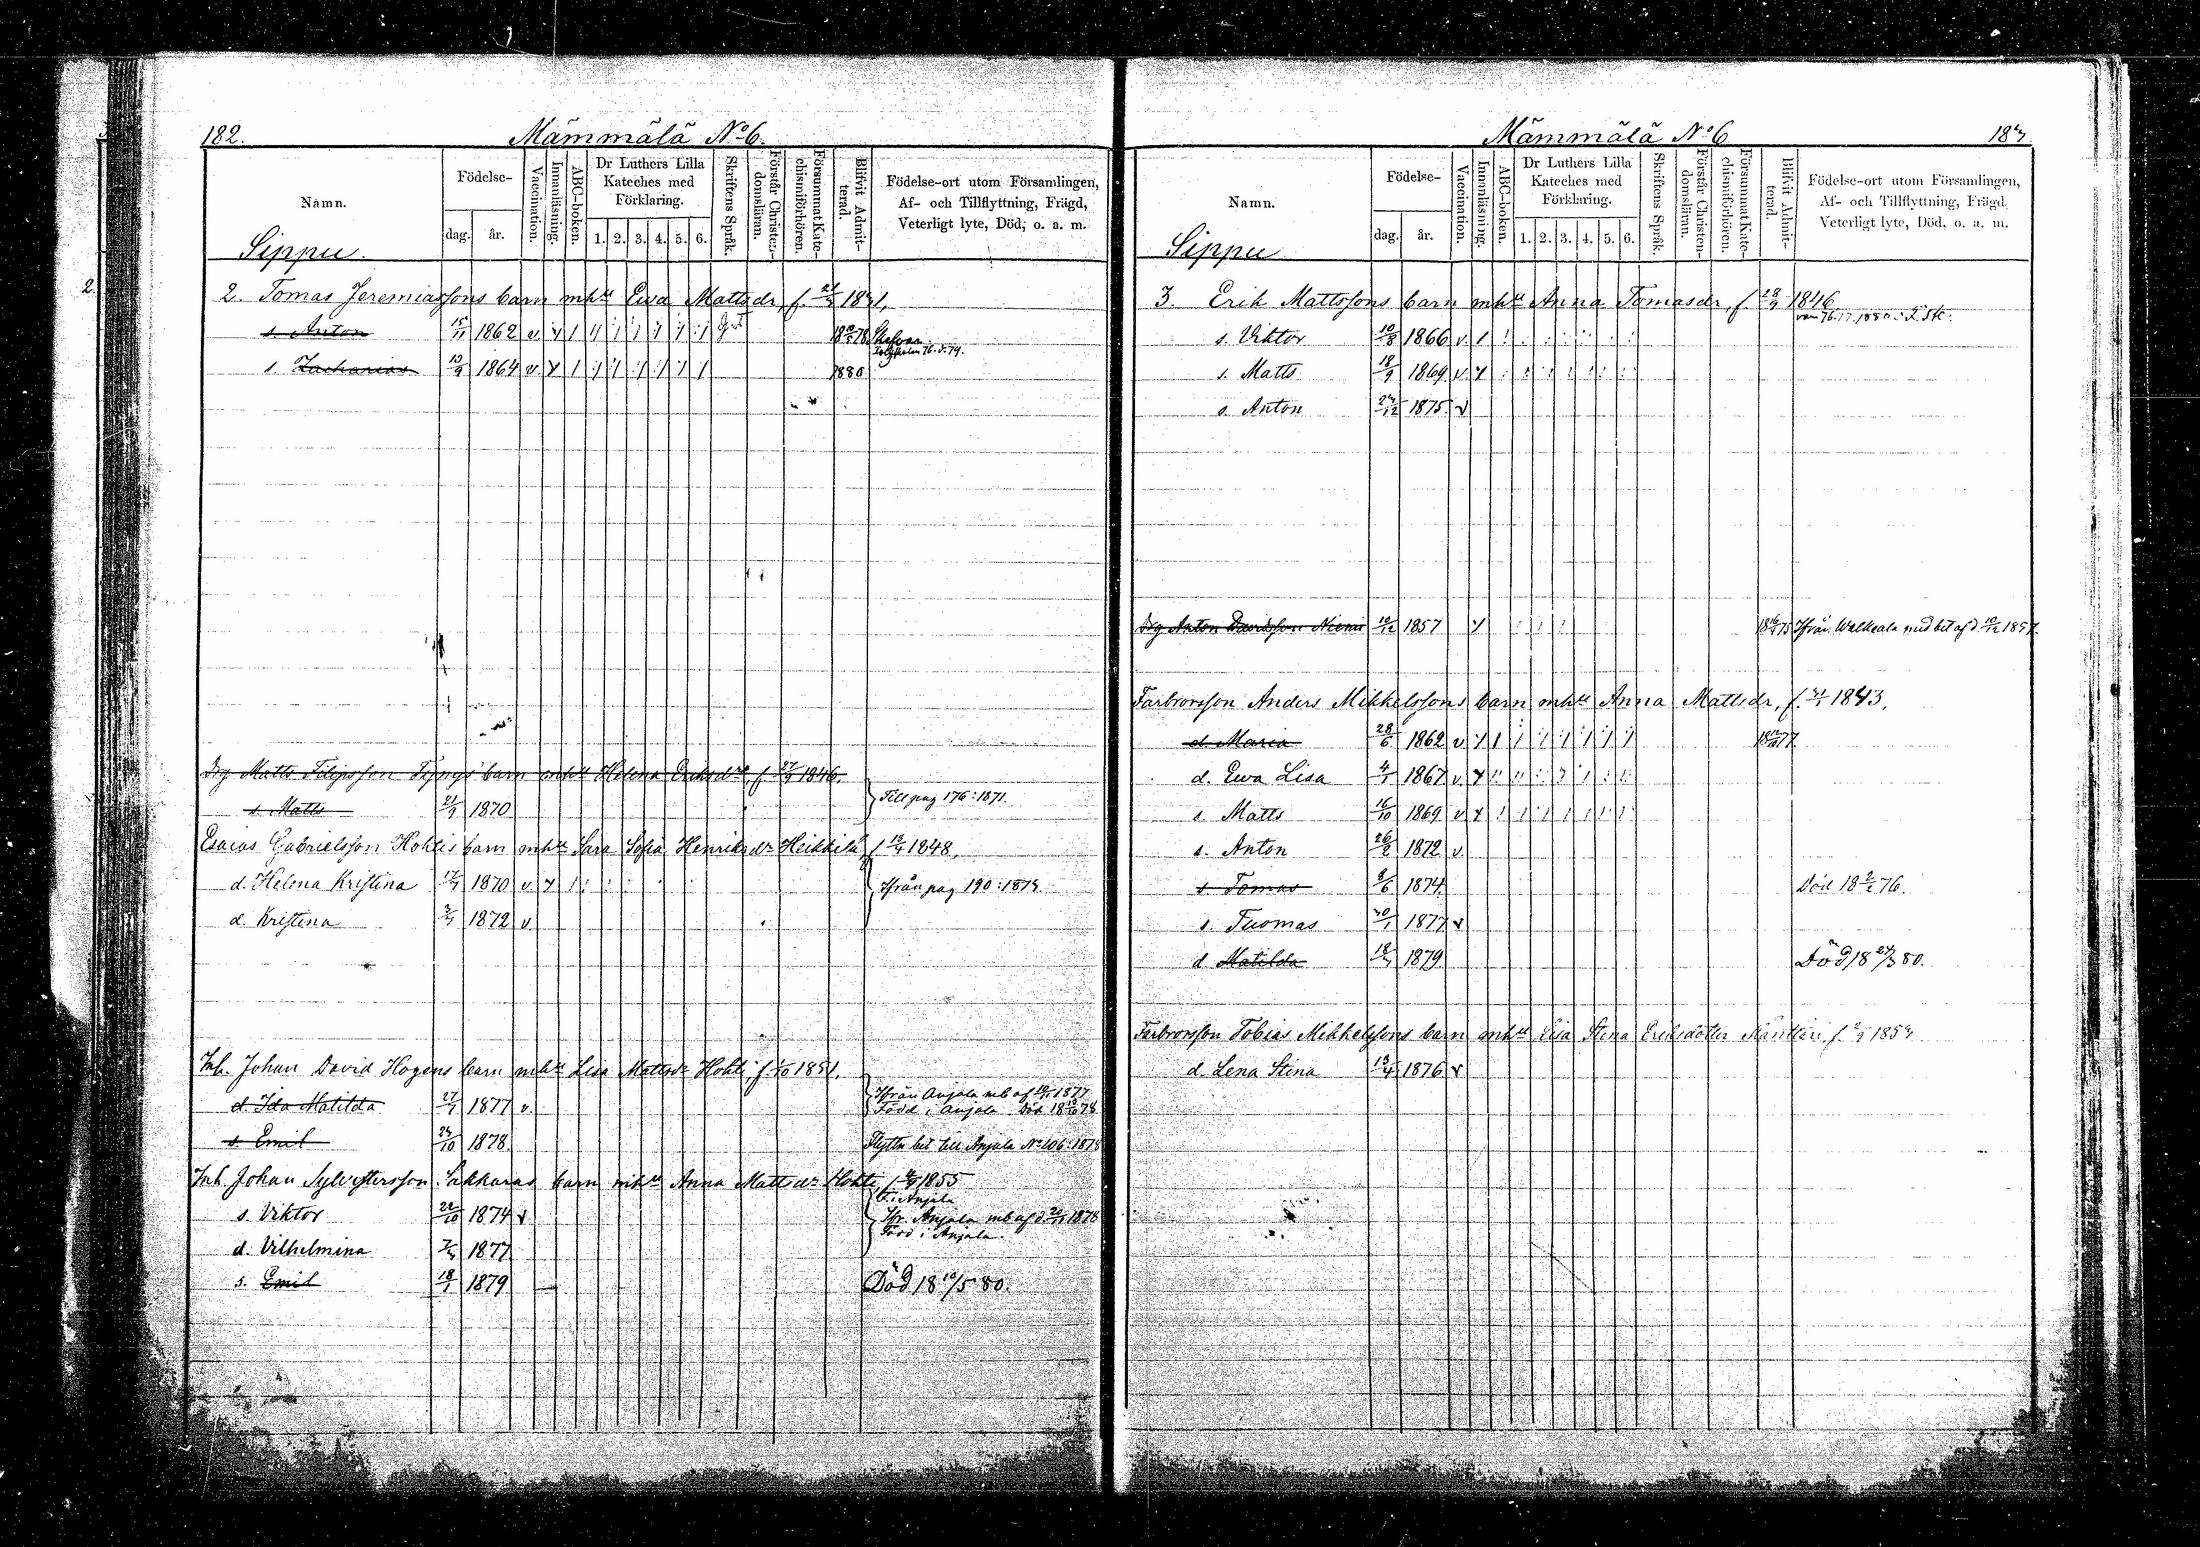 182.
Mämmälä No 6.
Namn.
Födelse-
dag.
år.
Vaccination.
Innanläsning.
ABC-boken.
Dr Luthers Lilla Kateches med Förklaring.
1. 2. 3. 4. 5. 6.
Skriftens Språk.
Förstår Christendomsläran.
Försummat Katechismiförhören.
Blifvit Admitterad.
Födelse-ort utom Församlingen,
Af- och Tillflyttning, Frägd,
Veterligt lyte, Död, o. a. m.
Sippu.
2. Tomas Jeremiassons barn mhu Ewa Mattsdr, f.
s. Anton 15/11 1862 v.
s. Zacharias 10/9 1864 v. 1880
Matts Filipsson barn mhu Helena Eriksdr f. 27/9 1846.
s. Matts 21/9 1870 Till pag 176: 1871.
Esaias Gabrielsson Hohtis barn mhu Sara Sofia Henriksdr Heikkilä, f. 1848.
d. Helena Kristina 17/7 1870 v. Ifrån pag 190:
d. Kristina 1872 v.
Inh. Johan David Hogens barn mhu Lisa Mattsdr Hohti f. 1851.
Ifrån Anjala mb af 1877
d. Ida Matilda 27/7 1877 v. Född i Anjala Död 78
s. Emil 1878. Flytta bet till Anjala No 106: 1878
Inh. Johan Sylvestersson Sakkaras barn mhu Anna Mattsdr Hohti f. 1855
s. Viktor 22/10 1874 v Ifr. Anjala mb af d. 1878
Född i Anjala.
d. Vilhelmina 1877
s. Emil 18/1 1879 Död 18 10/5 80.
Mämmälä No 6
183
Namn.
Födelse-
dag.
år.
Vaccination.
Innanläsning.
ABC-boken.
Dr Luthers Lilla Kateches med Förklaring.
1. 2. 3. 4. 5. 6.
Skriftens Språk.
Förstår Christendomsläran.
Försummat Katechismiförhören.
Blifvit Admitterad.
Födelse-ort utom Församlingen,
Af- och Tillflyttning, Frägd,
Veterligt lyte, Död, o. a. m.
Sippu
3. Erik Mattssons barn mhu Anna Tomasdr, f. 28/9 1846
s. Viktor 10/8 1866 v.
s. Matts 18/9 1869 v.
s. Anton 1875 v
Drg Anton Davidsson Niemi 10/12 1857 Ifrån Walkeala med bet af d. 10/12
Farbrorsson Anders Mikkelssons barn mhu Anna Mattsdr, f. 1843,
d. Maria 28/6 1862 v.
d. Ewa Lisa 4/1 1867 v.
s. Matts 16/10 1869 v
s. Anton 26/2 1872 v.
s. Tomas 8/6 1874 Död 18 76.
s. Tuomas 30/1 1877 v
d. Matilda 1879 Död 18 80.
Farbrorsson Tobias Mikkelssons barn mhu Lisa Stina Eriksdotter
d. Lena Stina 13/4 1876 v